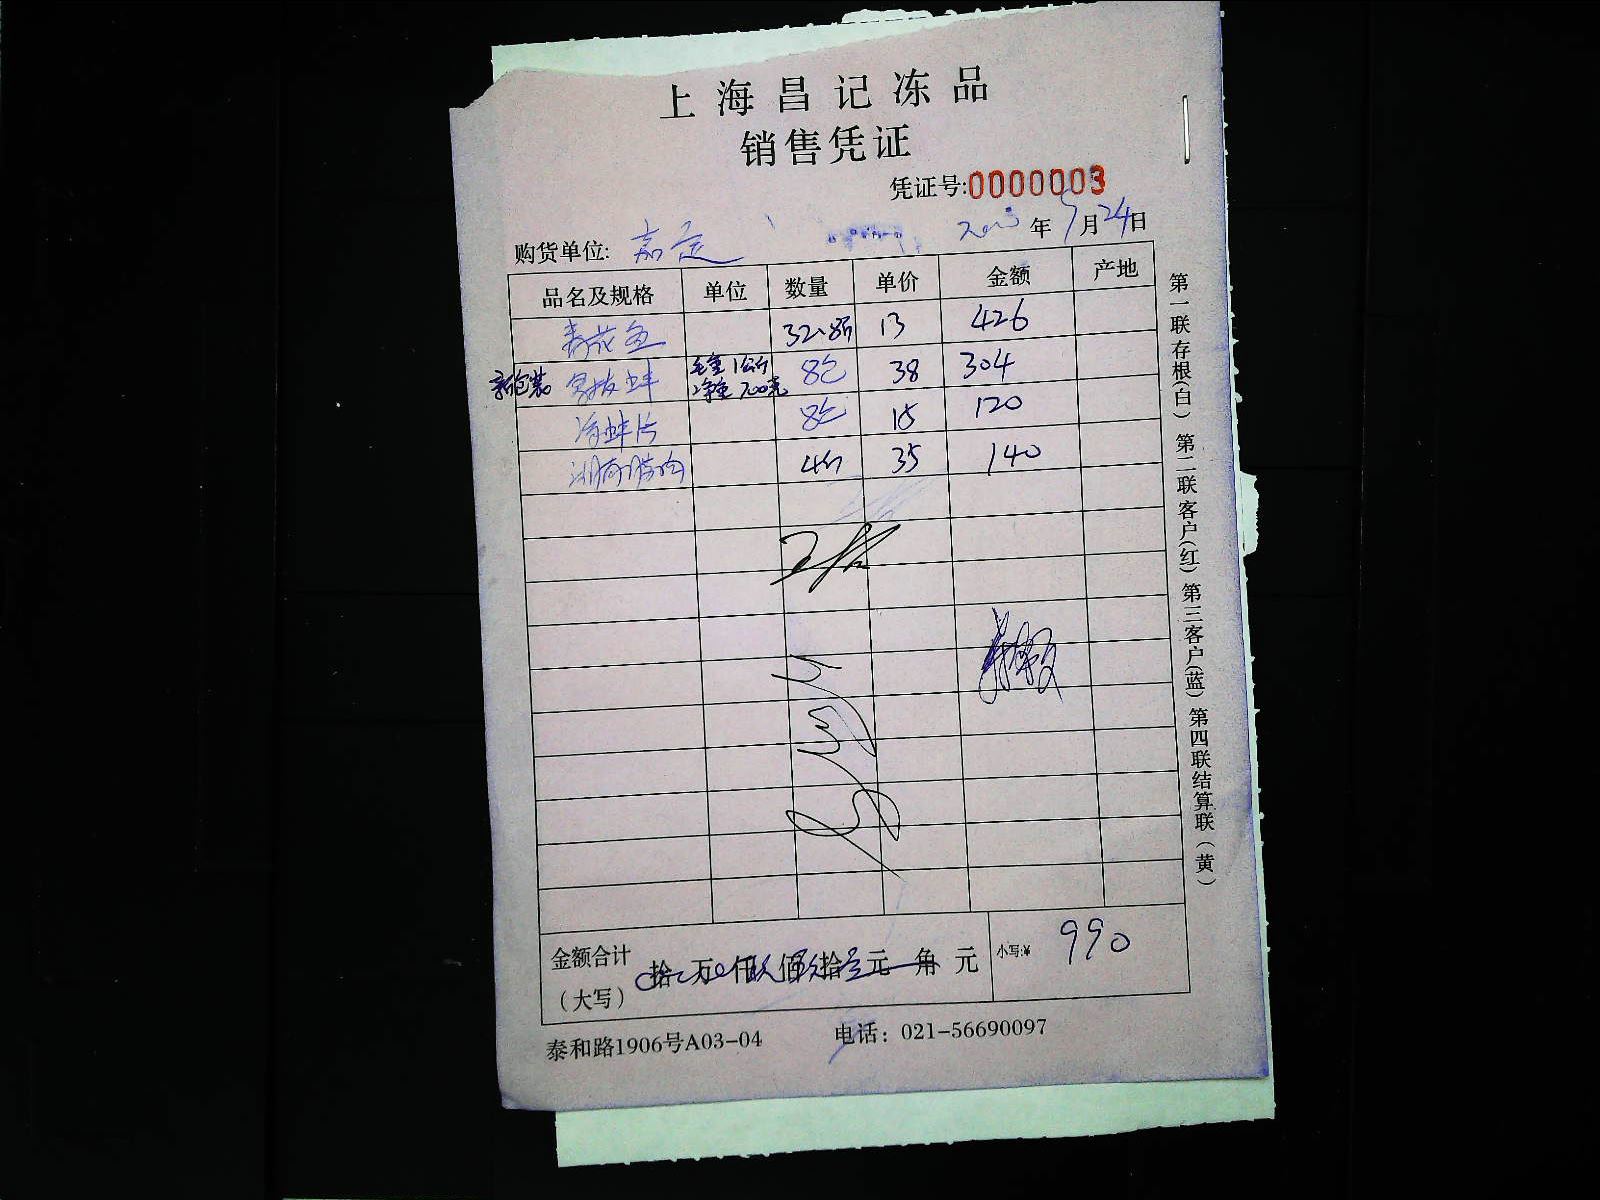 上海昌记冻品
销售凭证
凭证号:0000003
购货单位: 嘉定 年9月24日
品名及规格 单位 数量 单价 金额 产地
青花鱼 32.8斤 13 426
新包装 蚌 毛重1公斤 净重700克 8包 38 304
蚌片 8包 15 120
湖南腊肉 4斤 35 140
金额合计
(大写) 拾 万 仟 玖佰 玖拾 元 角 元 小写:¥ 990
泰和路1906号A03-04 电话: 021-56690097
第一联存根(白) 第二联客户(红) 第三客户(蓝) 第四联结算联(黄)